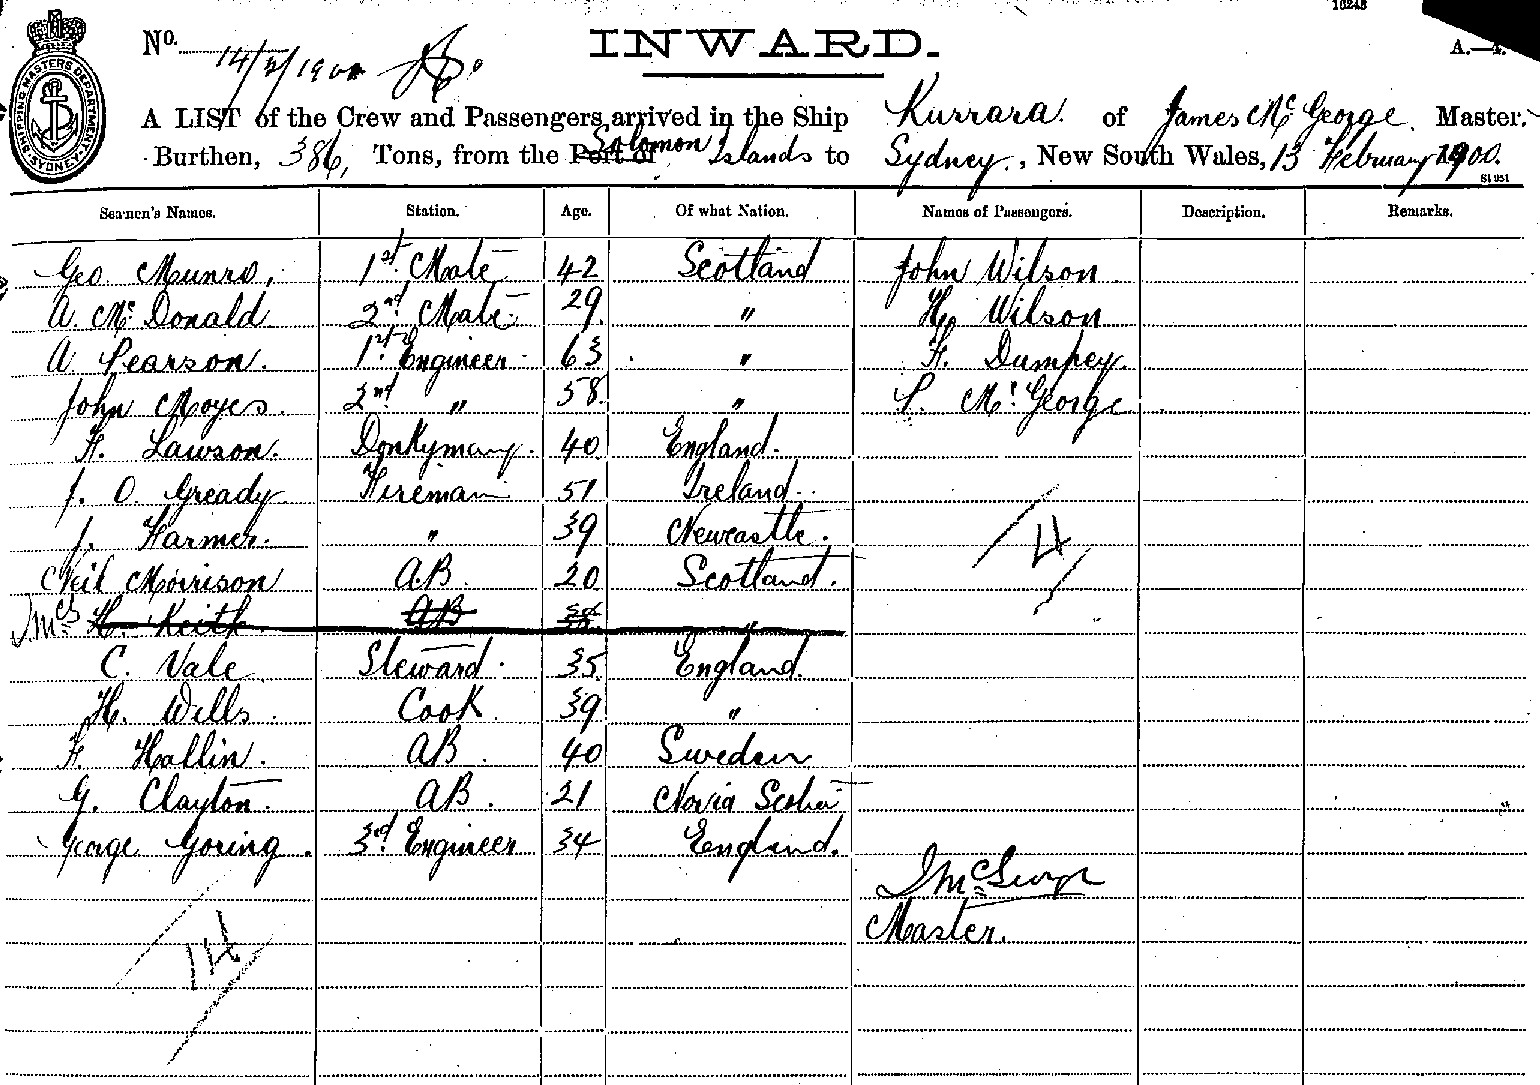 16248
No. 14/2/1900
INWARD.
A.—4.
SHIPPING MASTERS DEPARTMENT SYDNEY
A LIST of the Crew and Passengers arrived in the Ship Kurrara of James McGeorge Master.
Burthen, 386, Tons, from the Port of Solomon Islands to Sydney, New South Wales, 13 February 1900.
Seamen's Names. Station. Age. Of what Nation. Names of Passengers. Description. Remarks.
Geo. Munro, 1st Mate 42 Scotland John Wilson
A. McDonald 2nd Mate 29 " H. Wilson
A. Pearson. 1st Engineer 63 " F. Dumpey.
John Moyes. 2nd " 58 " P. McGeorge
F. Lawson. Donkyman. 40 England.
J. O. Gready Fireman 51 Ireland.
J. Farmer. " 39 Newcastle.
4
Neil Morrison AB. 20 Scotland.
H. Keith AB "
C. Vale Steward. 35 England.
H. Wills. Cook. 39 "
F. Hallin. AB. 40 Sweden
G. Clayton. AB. 21 Novia Scotia
George Goring. 3rd Engineer 34 England.
J McGeorge
Master.
14